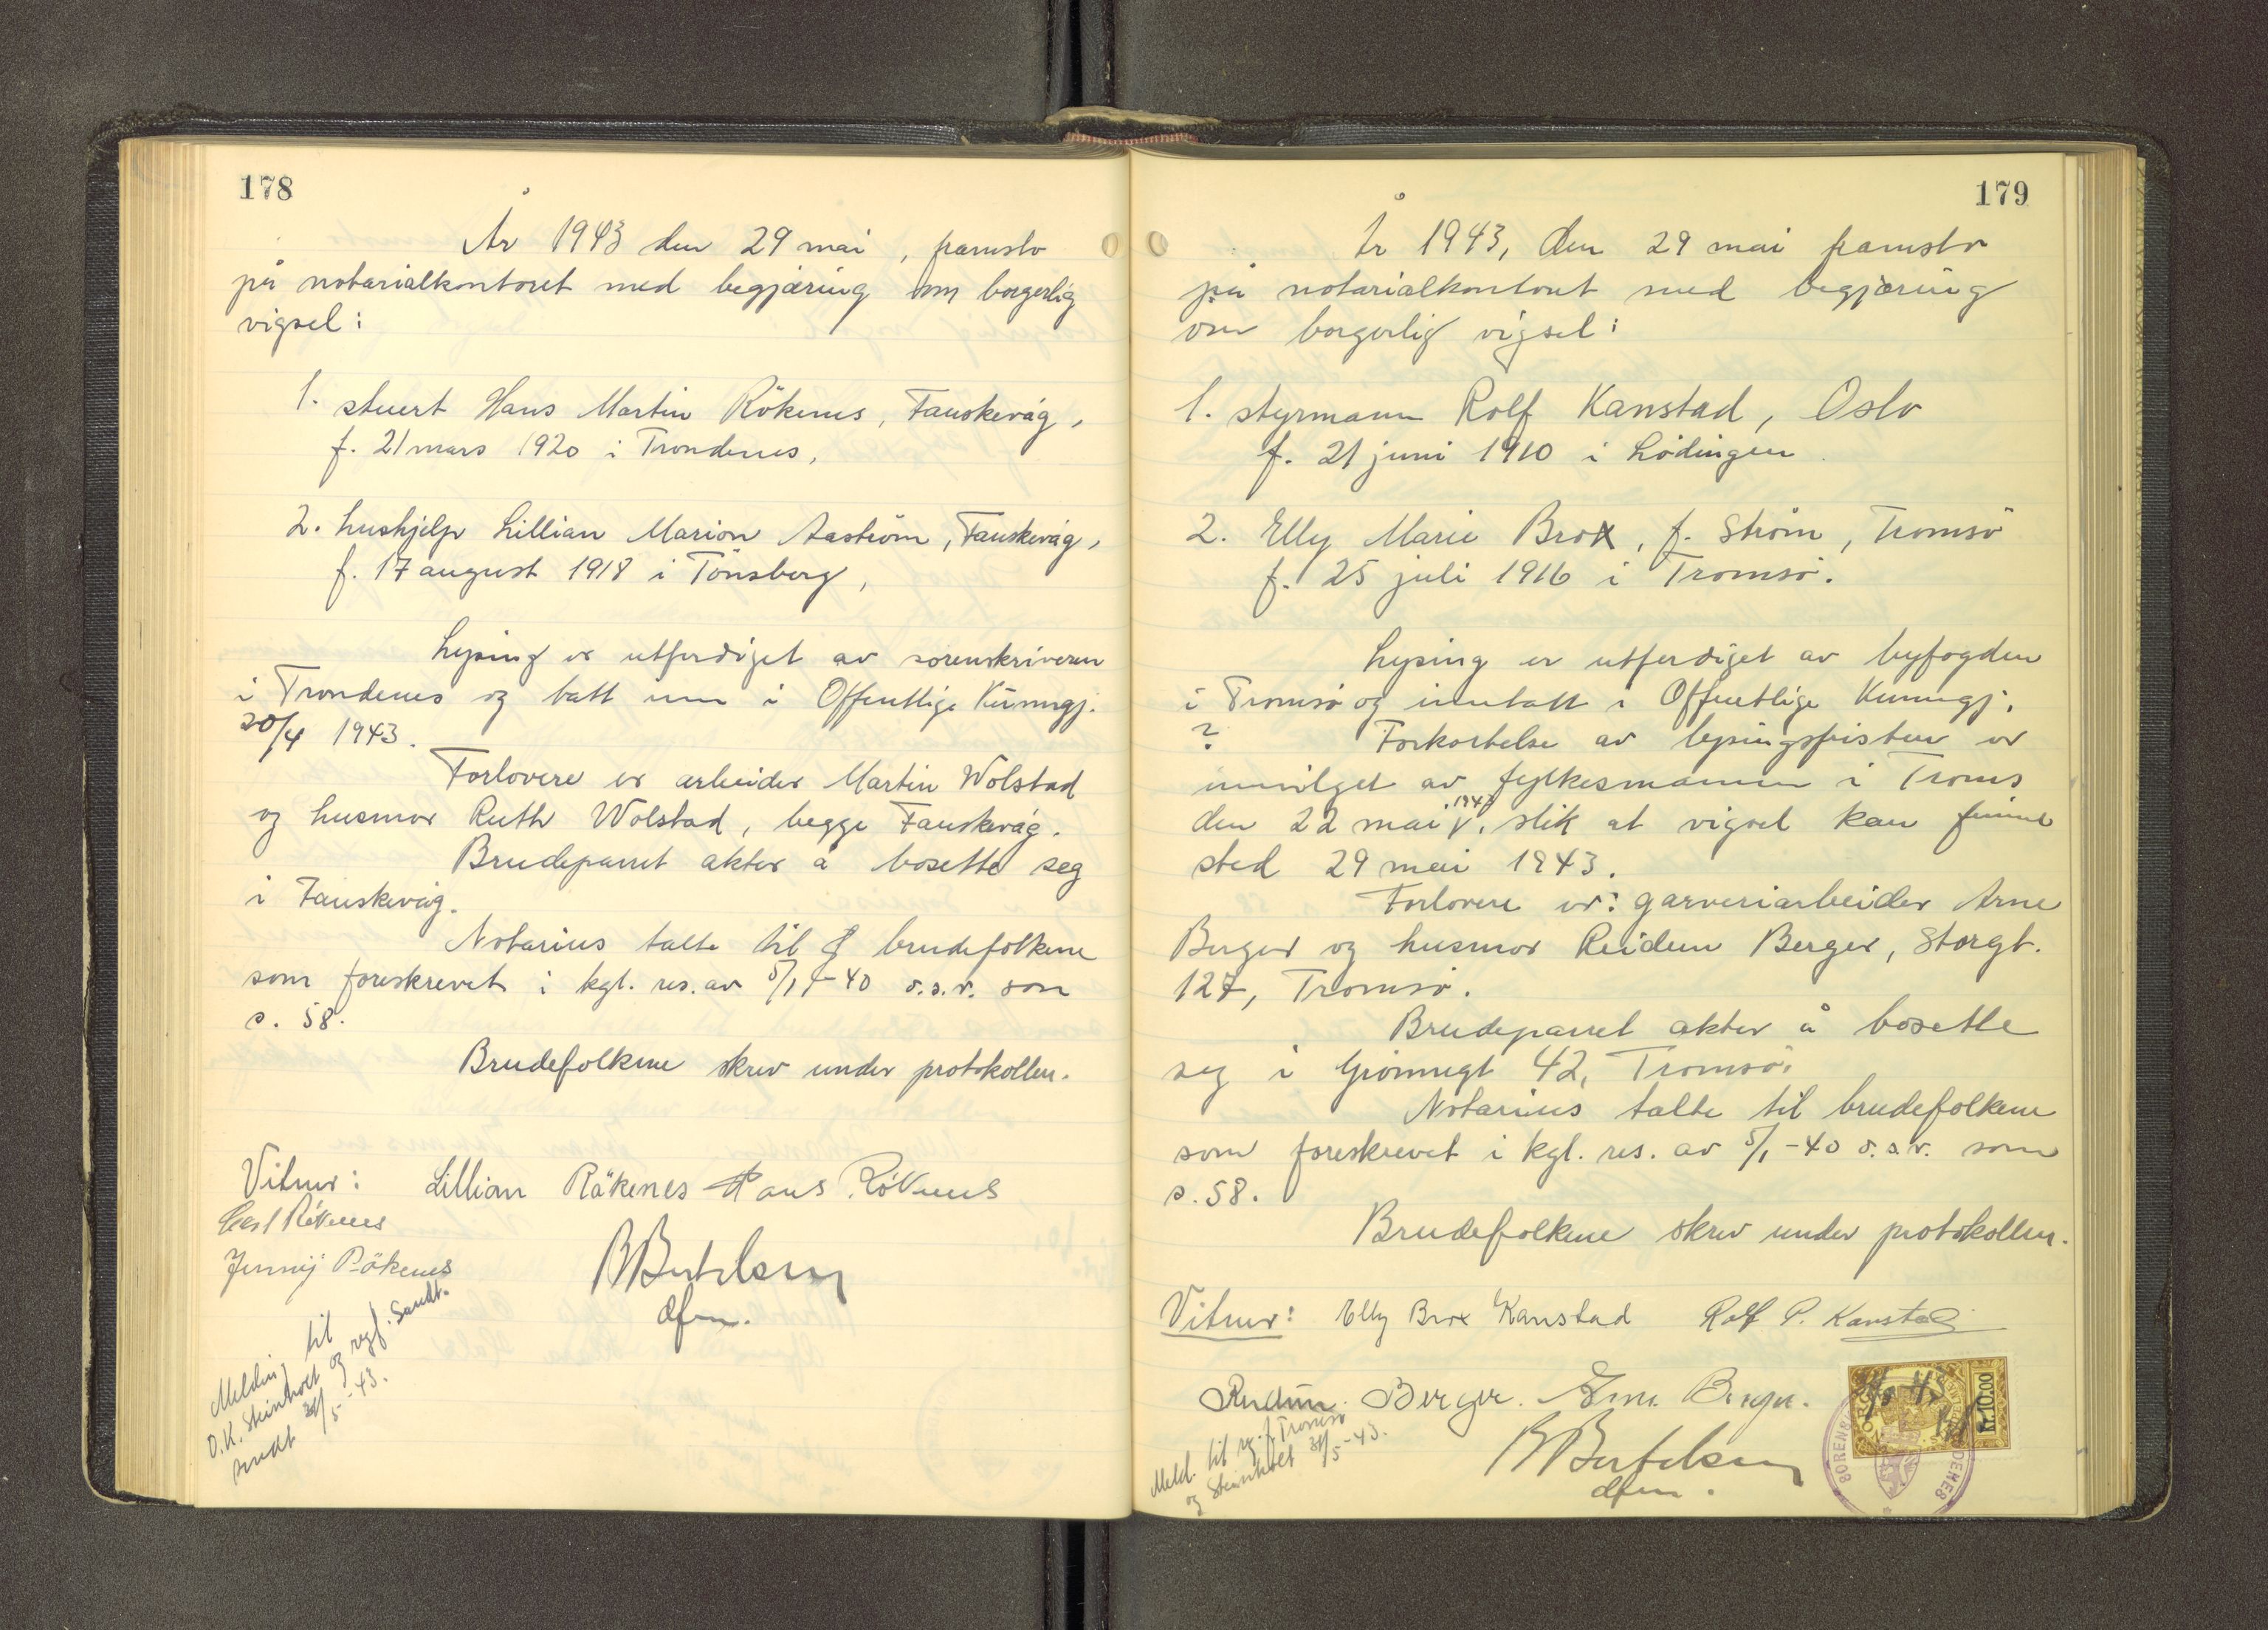 178
År 1943 den 29 mai, framsto
på notarialkontoret med begjæring om borgerlig
vigsel:
1. stuert Hans Martin Rökenes, Fauskevåg,
f. 21 mars 1920 i Trondenes,
2. hushjelp Lillian Marion Aaström, Fauskevåg,
f. 17 august 1918 i Tönsberg,
Lysing er utferdiget av sorenskriveren
i Trondenes og tatt inn i Offentlige Kunngj.
20/4 1943.
Forlovere er arbeider Martin Wolstad
og husmor Ruth Wolstad, begge Fauskevåg.
Brudeparret akter å bosette seg
i Fauskevåg.
Notarius talte til brudefolkene
som foreskrevet i kgl. res. av 5/1-40 o.s.v. som
s. 58.
Brudefolkene skrev under protokollen.
Vitner: Lillian Rökenes Hans Rökenes
Carl Rökenes
Jenny Rökenes
BBertelsen
dfm.
Melding til
O.K. Steinholt og rgf. Sandt.
sendt 31/5-43.
179
År 1943, den 29 mai framsto
på notarialkontoret med begjæring
om borgerlig vigsel:
1. styrmann Rolf Kanstad, Oslo
f. 21 juni 1910 i Lödingen
2. Elly Marie Brox, f. Ström, Tromsö
f. 25 juli 1916 i Tromsö.
Lysing er utferdiget av byfogden
i Tromsö og inntatt i Offentlige Kunngj.
? Forkortelse av lysingsfristen er
innvilget av fylkesmannen i Troms
den 22 mai 1943, slik at vigsel kan finne
sted 29 mai 1943.
Forlovere er: garveriarbeider Arne
Berger og husmor Reidun Berger, Storgt.
127, Tromsö.
Brudeparret akter å bosette
seg i Grönnegt 42, Tromsö.
Notarius talte til brudefolkene
som foreskrevet i kgl. res. av 5/1-40 o.s.v. som
s. 58.
Brudefolkene skrev under protokollen.
Vitner: Elly Brox Kanstad Rolf P. Kanstad
Reidun Berger. Arne Berger.
BBertelsen
dfm.
Meld. til rg. f. Tromsö
og Steinholt 31/5-43.
Kr. 10.00